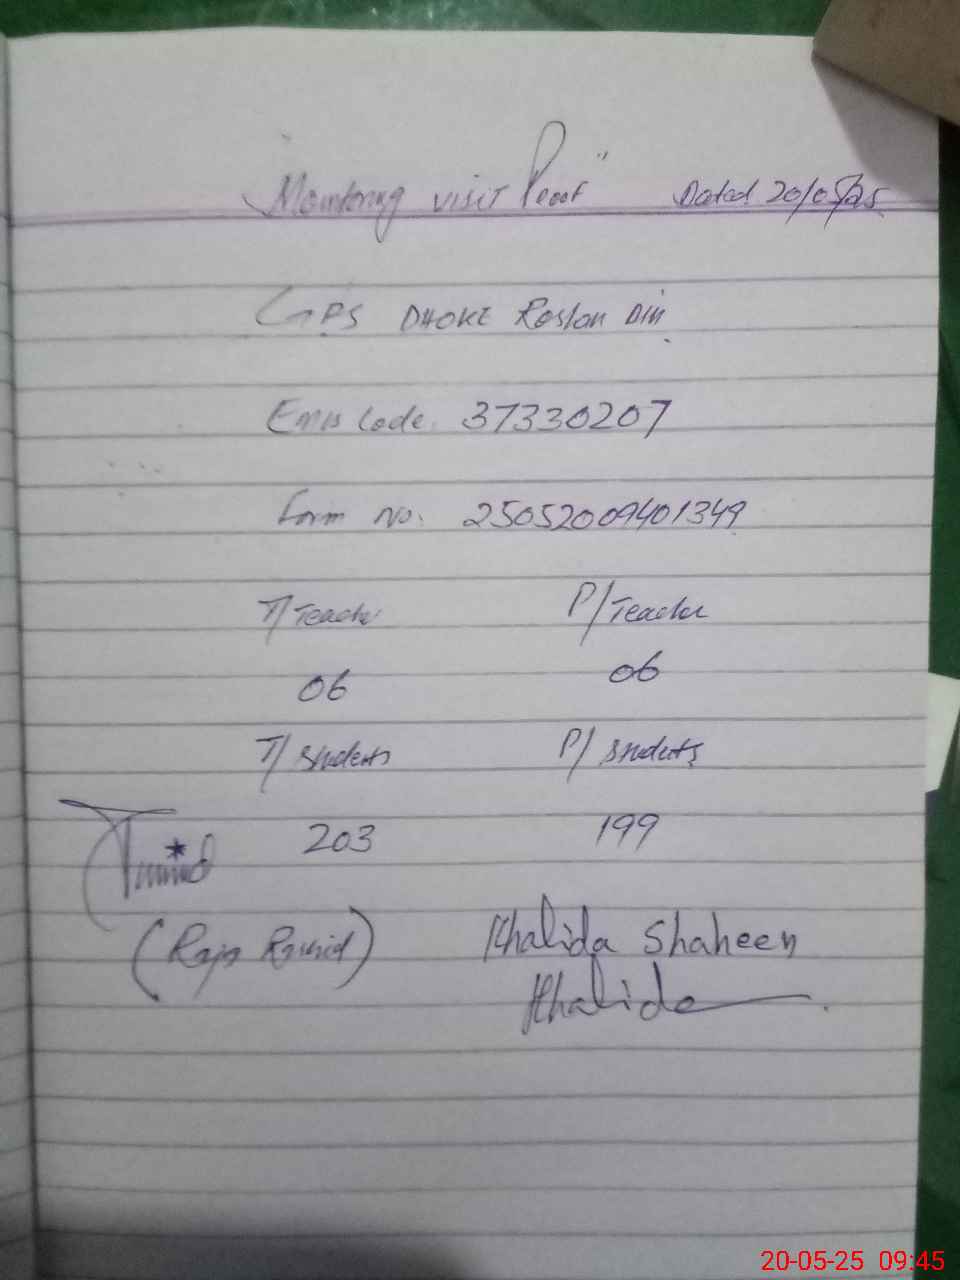 "Monitoring visit Proof" Dated 20/05/25
GPS DHOKE Roshan Din
Emis Code. 37330207
Form No. 25052009401349
T/Teacher P/Teacher
06 06
T/Students P/Students
203 199
(Raja Rashid) Khalida Shaheen
Khalida
20-05-25 09:45